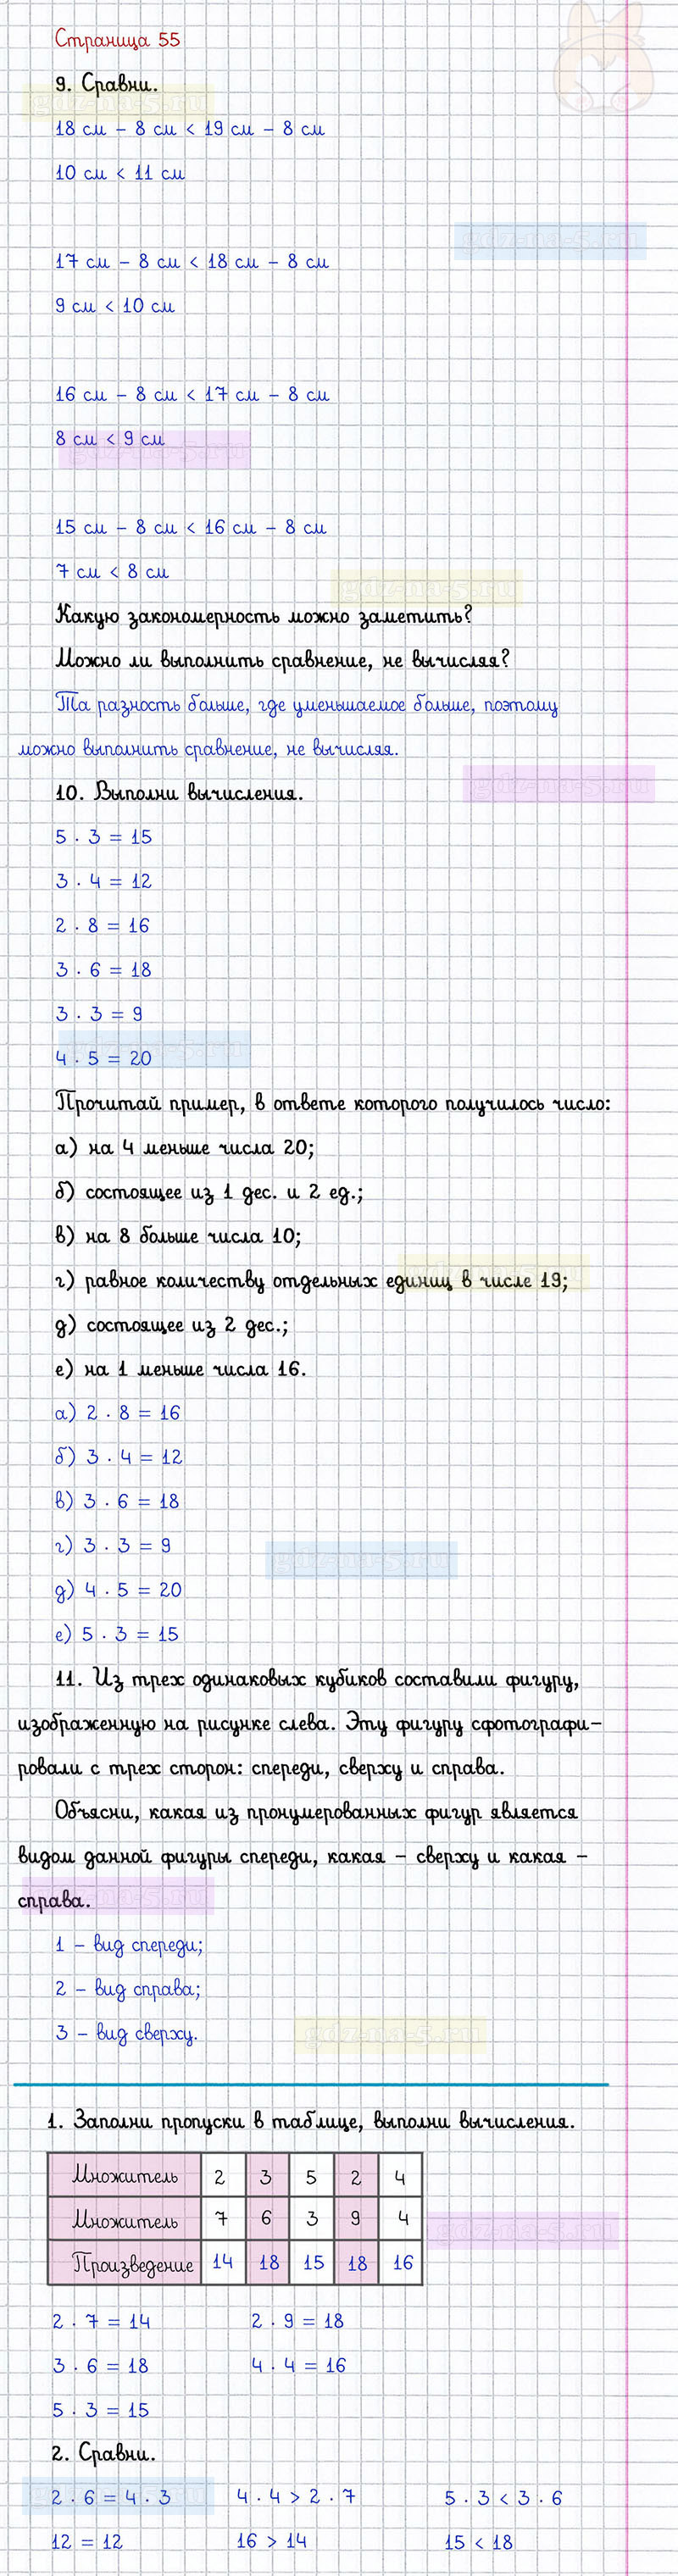 Страница 55
9. Сравни.
gdz-na-5.ru
18 см – 8 см < 19 см – 8 см
10 см < 11 см
gdz-na-5.ru
17 см – 8 см < 18 см – 8 см
9 см < 10 см
16 см – 8 см < 17 см – 8 см
8 см < 9 см
gdz-na-5.ru
15 см – 8 см < 16 см – 8 см
7 см < 8 см
gdz-na-5.ru
Какую закономерность можно заметить?
Можно ли выполнить сравнение, не вычисляя?
Та разность больше, где уменьшаемое больше, поэтому
можно выполнить сравнение, не вычисляя.
gdz-na-5.ru
10. Выполни вычисления.
5 · 3 = 15
3 · 4 = 12
2 · 8 = 16
3 · 6 = 18
3 · 3 = 9
gdz-na-5.ru
4 · 5 = 20
Прочитай пример, в ответе которого получилось число:
а) на 4 меньше числа 20;
б) состоящее из 1 дес. и 2 ед.;
в) на 8 больше числа 10;
gdz-na-5.ru
г) равное количеству отдельных единиц в числе 19;
д) состоящее из 2 дес.;
е) на 1 меньше числа 16.
а) 2 · 8 = 16
б) 3 · 4 = 12
в) 3 · 6 = 18
г) 3 · 3 = 9
gdz-na-5.ru
д) 4 · 5 = 20
е) 5 · 3 = 15
11. Из трех одинаковых кубиков составили фигуру,
изображенную на рисунке слева. Эту фигуру сфотографи–
ровали с трех сторон: спереди, сверху и справа.
Объясни, какая из пронумерованных фигур является
видом данной фигуры спереди, какая – сверху и какая –
справа.
gdz-na-5.ru
1 – вид спереди;
2 – вид справа;
3 – вид сверху.
gdz-na-5.ru
1. Заполни пропуски в таблице, выполни вычисления.
Множитель 2 3 5 2 4
Множитель 7 6 3 9 4
gdz-na-5.ru
Произведение 14 18 15 18 16
2 · 7 = 14 2 · 9 = 18
3 · 6 = 18 4 · 4 = 16
5 · 3 = 15
2. Сравни.
gdz-na-5.ru
2 · 6 = 4 · 3 4 · 4 > 2 · 7 5 · 3 < 3 · 6
12 = 12 16 > 14 15 < 18